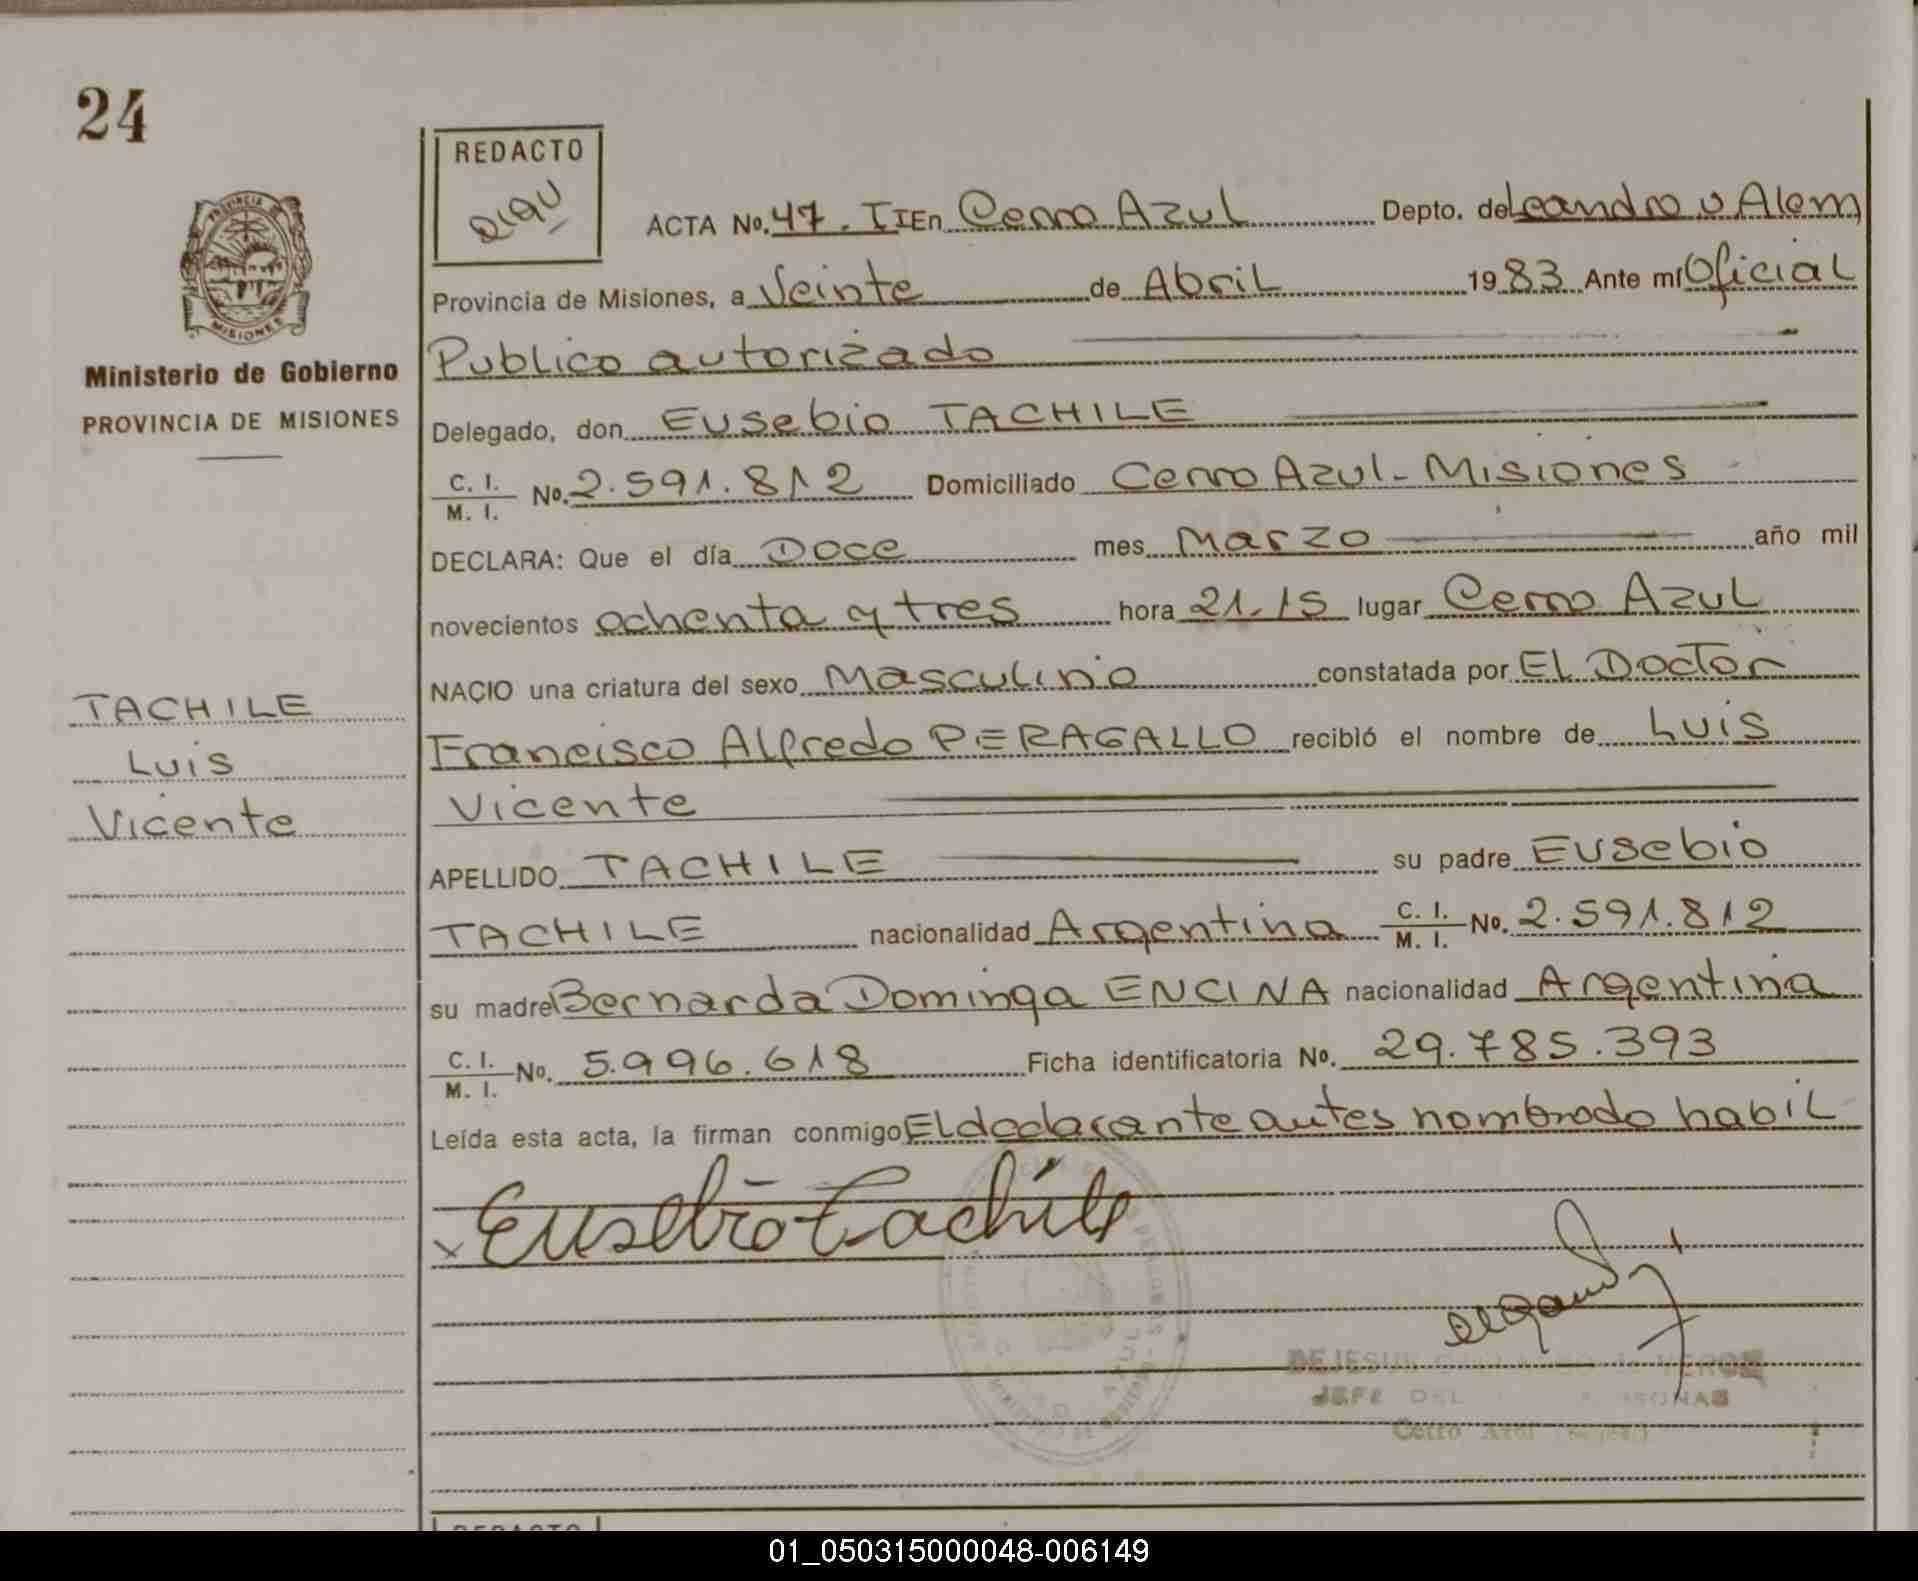 24
REDACTO
PROVINCIA
MISIONES
Ministerio de Gobierno
PROVINCIA DE MISIONES
TACHILE
Luis
Vicente
ACTA No. 47. I IEn Cerro Azul Depto. de Leandro N Alem
Provincia de Misiones, a Veinte de Abril 1983 Ante mí Oficial
Publico autorizado
Delegado, don Eusebio TACHILE
C. I. / M. I. No. 2.591.812 Domiciliado Cerro Azul - Misiones
DECLARA: Que el día Doce mes Marzo año mil
novecientos ochenta y tres hora 21.15 lugar Cerro Azul
NACIO una criatura del sexo Masculino constatada por El Doctor
Francisco Alfredo PERAGALLO recibió el nombre de Luis
Vicente
APELLIDO TACHILE su padre Eusebio
TACHILE nacionalidad Argentina C. I. / M. I. No. 2.591.812
su madre Bernarda Dominga ENCINA nacionalidad Argentina
C. I. / M. I. No. 5.996.618 Ficha identificatoria No. 29.785.393
Leída esta acta, la firman conmigo El declarante antes nombrado habil
x Eusebio Tachile
DEJESUS
JEFE DEL
Cerro Azul
REDACTO
01_050315000048-006149